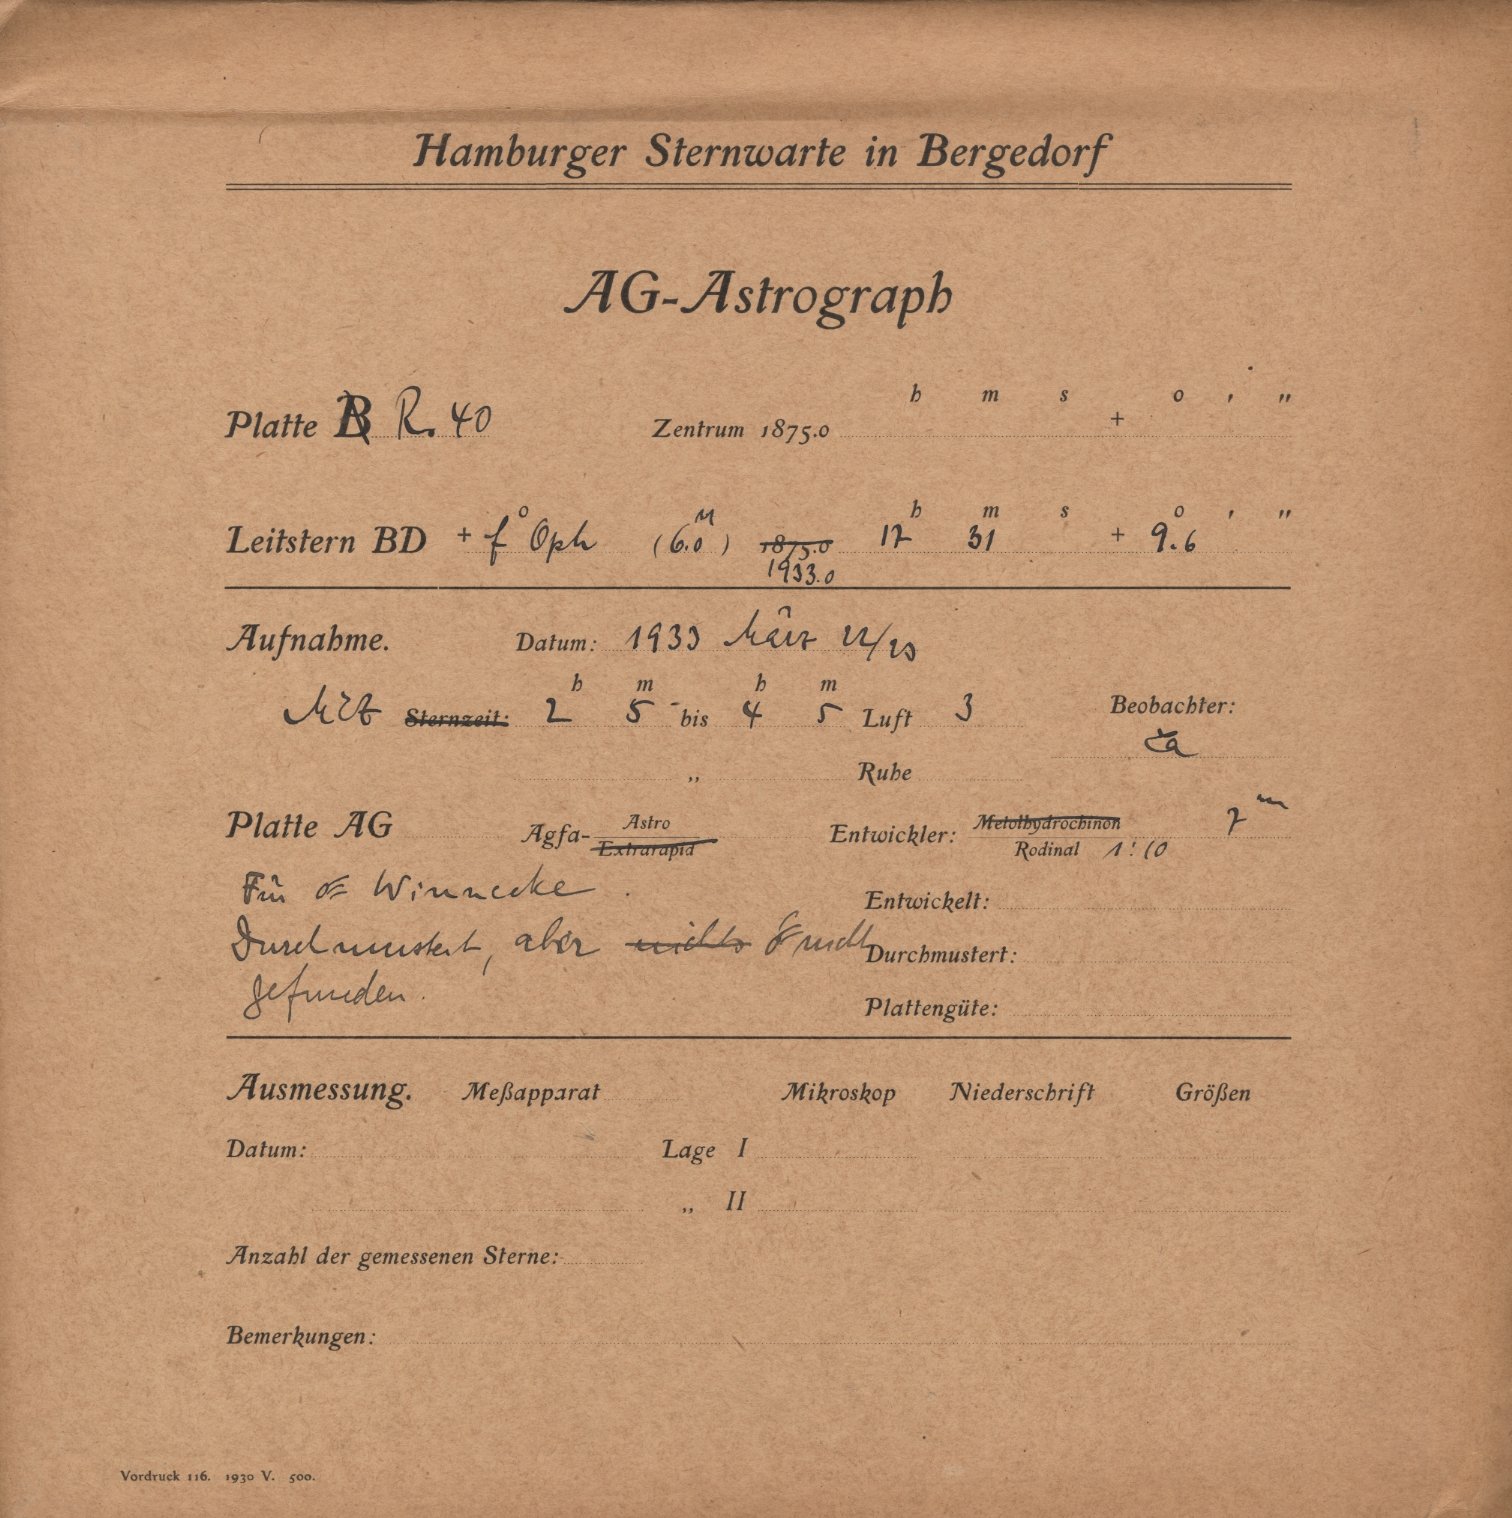 Hamburger Sternwarte in Bergedorf
AG-Astrograph
h m s o ' "
Platte B R. 40 Zentrum 1875.0 +
o M h m s o ' "
Leitstern BD + f Oph (6.0) 1875.0 17 31 + 9.6
1933.0
Aufnahme. Datum: 1933 März 22/23
h m h m
MEZ Sternzeit: 2 5 - bis 4 5 Luft 3 Beobachter:
" Ruhe
Platte AG Agfa- Astro Extrarapid Entwickler: Metolhydrochinon Rodinal 1:10 7 m
Für Winnecke.
Entwickelt:
Durchmustert, aber nichts nicht
Durchmustert:
gefunden.
Plattengüte:
Ausmessung. Meßapparat Mikroskop Niederschrift Größen
Datum: Lage I
" II
Anzahl der gemessenen Sterne:
Bemerkungen:
Vordruck 116. 1930 V. 500.